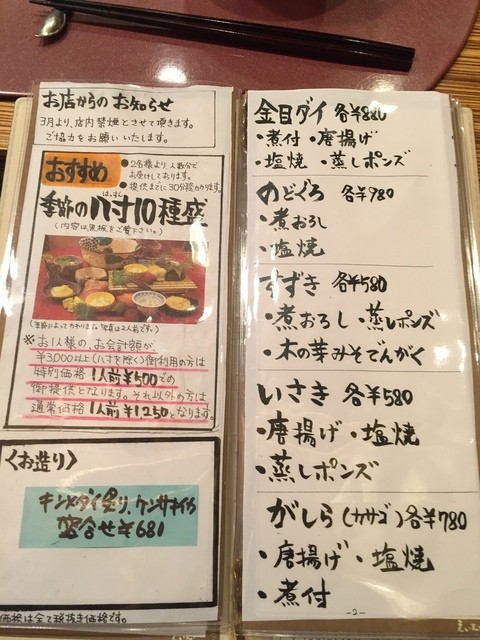 お店からのお知らせ
3月より、店内禁煙とさせて頂きます。
ご協力をお願いいたします。
おすすめ
●2名様より、人数分で
お受けしております。
●提供までに30分程かかります。
はっすん
季節の八寸10種盛
(内容は黒板をご覧下さい。)
(季節によってかわります。写真は2人前です。)
※お1人様のお会計額が、
¥3,000以上(八寸を除く)御利用の方は
特別価格 1人前¥500での
御提供となります。それ以外の方は
通常価格 1人前¥1,250となります。
〈お造り〉
キンメダイ炙り、ケンサキイカ
盛合せ¥681
価格は全て税抜き価格です。
金目ダイ 各¥880
・煮付 ・唐揚げ
・塩焼 ・蒸しポンズ
のどぐろ 各¥980
・煮おろし
・塩焼
すずき 各¥580
・煮おろし ・蒸しポンズ
・木の芽みそでんがく
いさき 各¥580
・唐揚げ ・塩焼
・蒸しポンズ
がしら(カサゴ)各¥780
・唐揚げ ・塩焼
・煮付
-2-